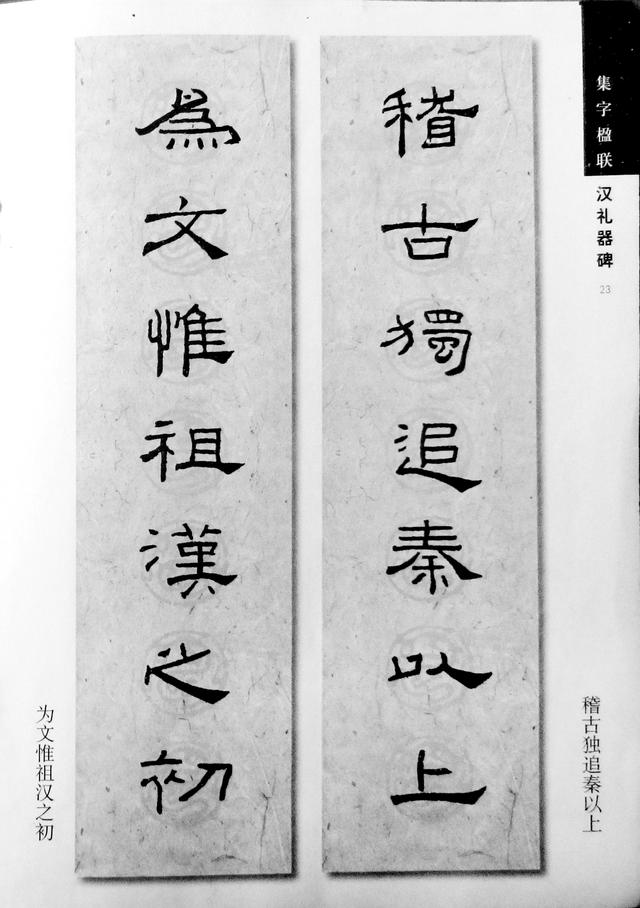 集字楹联
汉礼器碑
23
稽古獨追秦以上
稽古独追秦以上
為文惟祖漢之初
为文惟祖汉之初